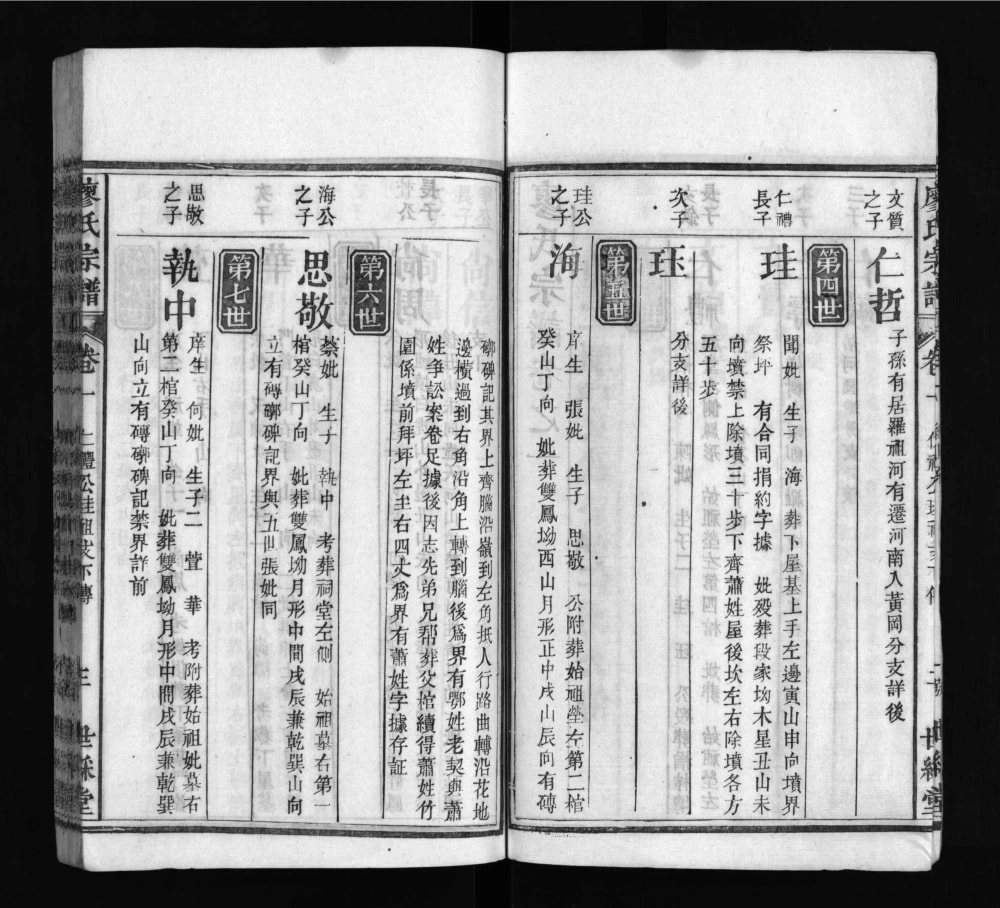 文質
之子
仁哲
子孫有居羅祖河有遷河南入黃岡分支詳後
第四世
仁禮
長子
珪
聞妣 生子 海 葬下屋基上手左邊寅山申向墳界
祭坪 有合同捐約字據 妣歿葬段家坳木星丑山未
向墳禁上除墳三十步下齊蕭姓屋後坎左右除墳各方
五十步
次子
珏
分支詳後
第五世
珪公
之子
海
庠生 張妣 生子 思敬 公附葬始祖塋左第二棺
癸山丁向 妣葬雙鳳坳西山月形正中戌山辰向有磚
碑記其界上齊腦沿嶺到左角抵人行路曲轉沿花地
邊橫過到右角沿角上轉到腦後爲界有鄂姓老契與蕭
姓爭訟案卷足據後因志先弟兄幇葬父棺續得蕭姓竹
園係墳前拜坪左圭右四丈爲界有蕭姓字據存証
第六世
海公
之子
思敬
蔡妣 生子 執中 考葬祠堂左側 始祖墓右第一
棺癸山丁向 妣葬雙鳳坳月形中間戌辰兼乾巽山向
立有磚碑記界與五世張妣同
第七世
思敬
之子
執中
庠生 何妣 生子二 萱 華 考附葬始祖妣墓右
第二棺癸山丁向 妣葬雙鳳坳月形中間戌辰兼乾巽
山向立有磚碑記禁界詳前
廖氏宗譜
卷一
仁禮公珪祖支下傳
三
世綵堂